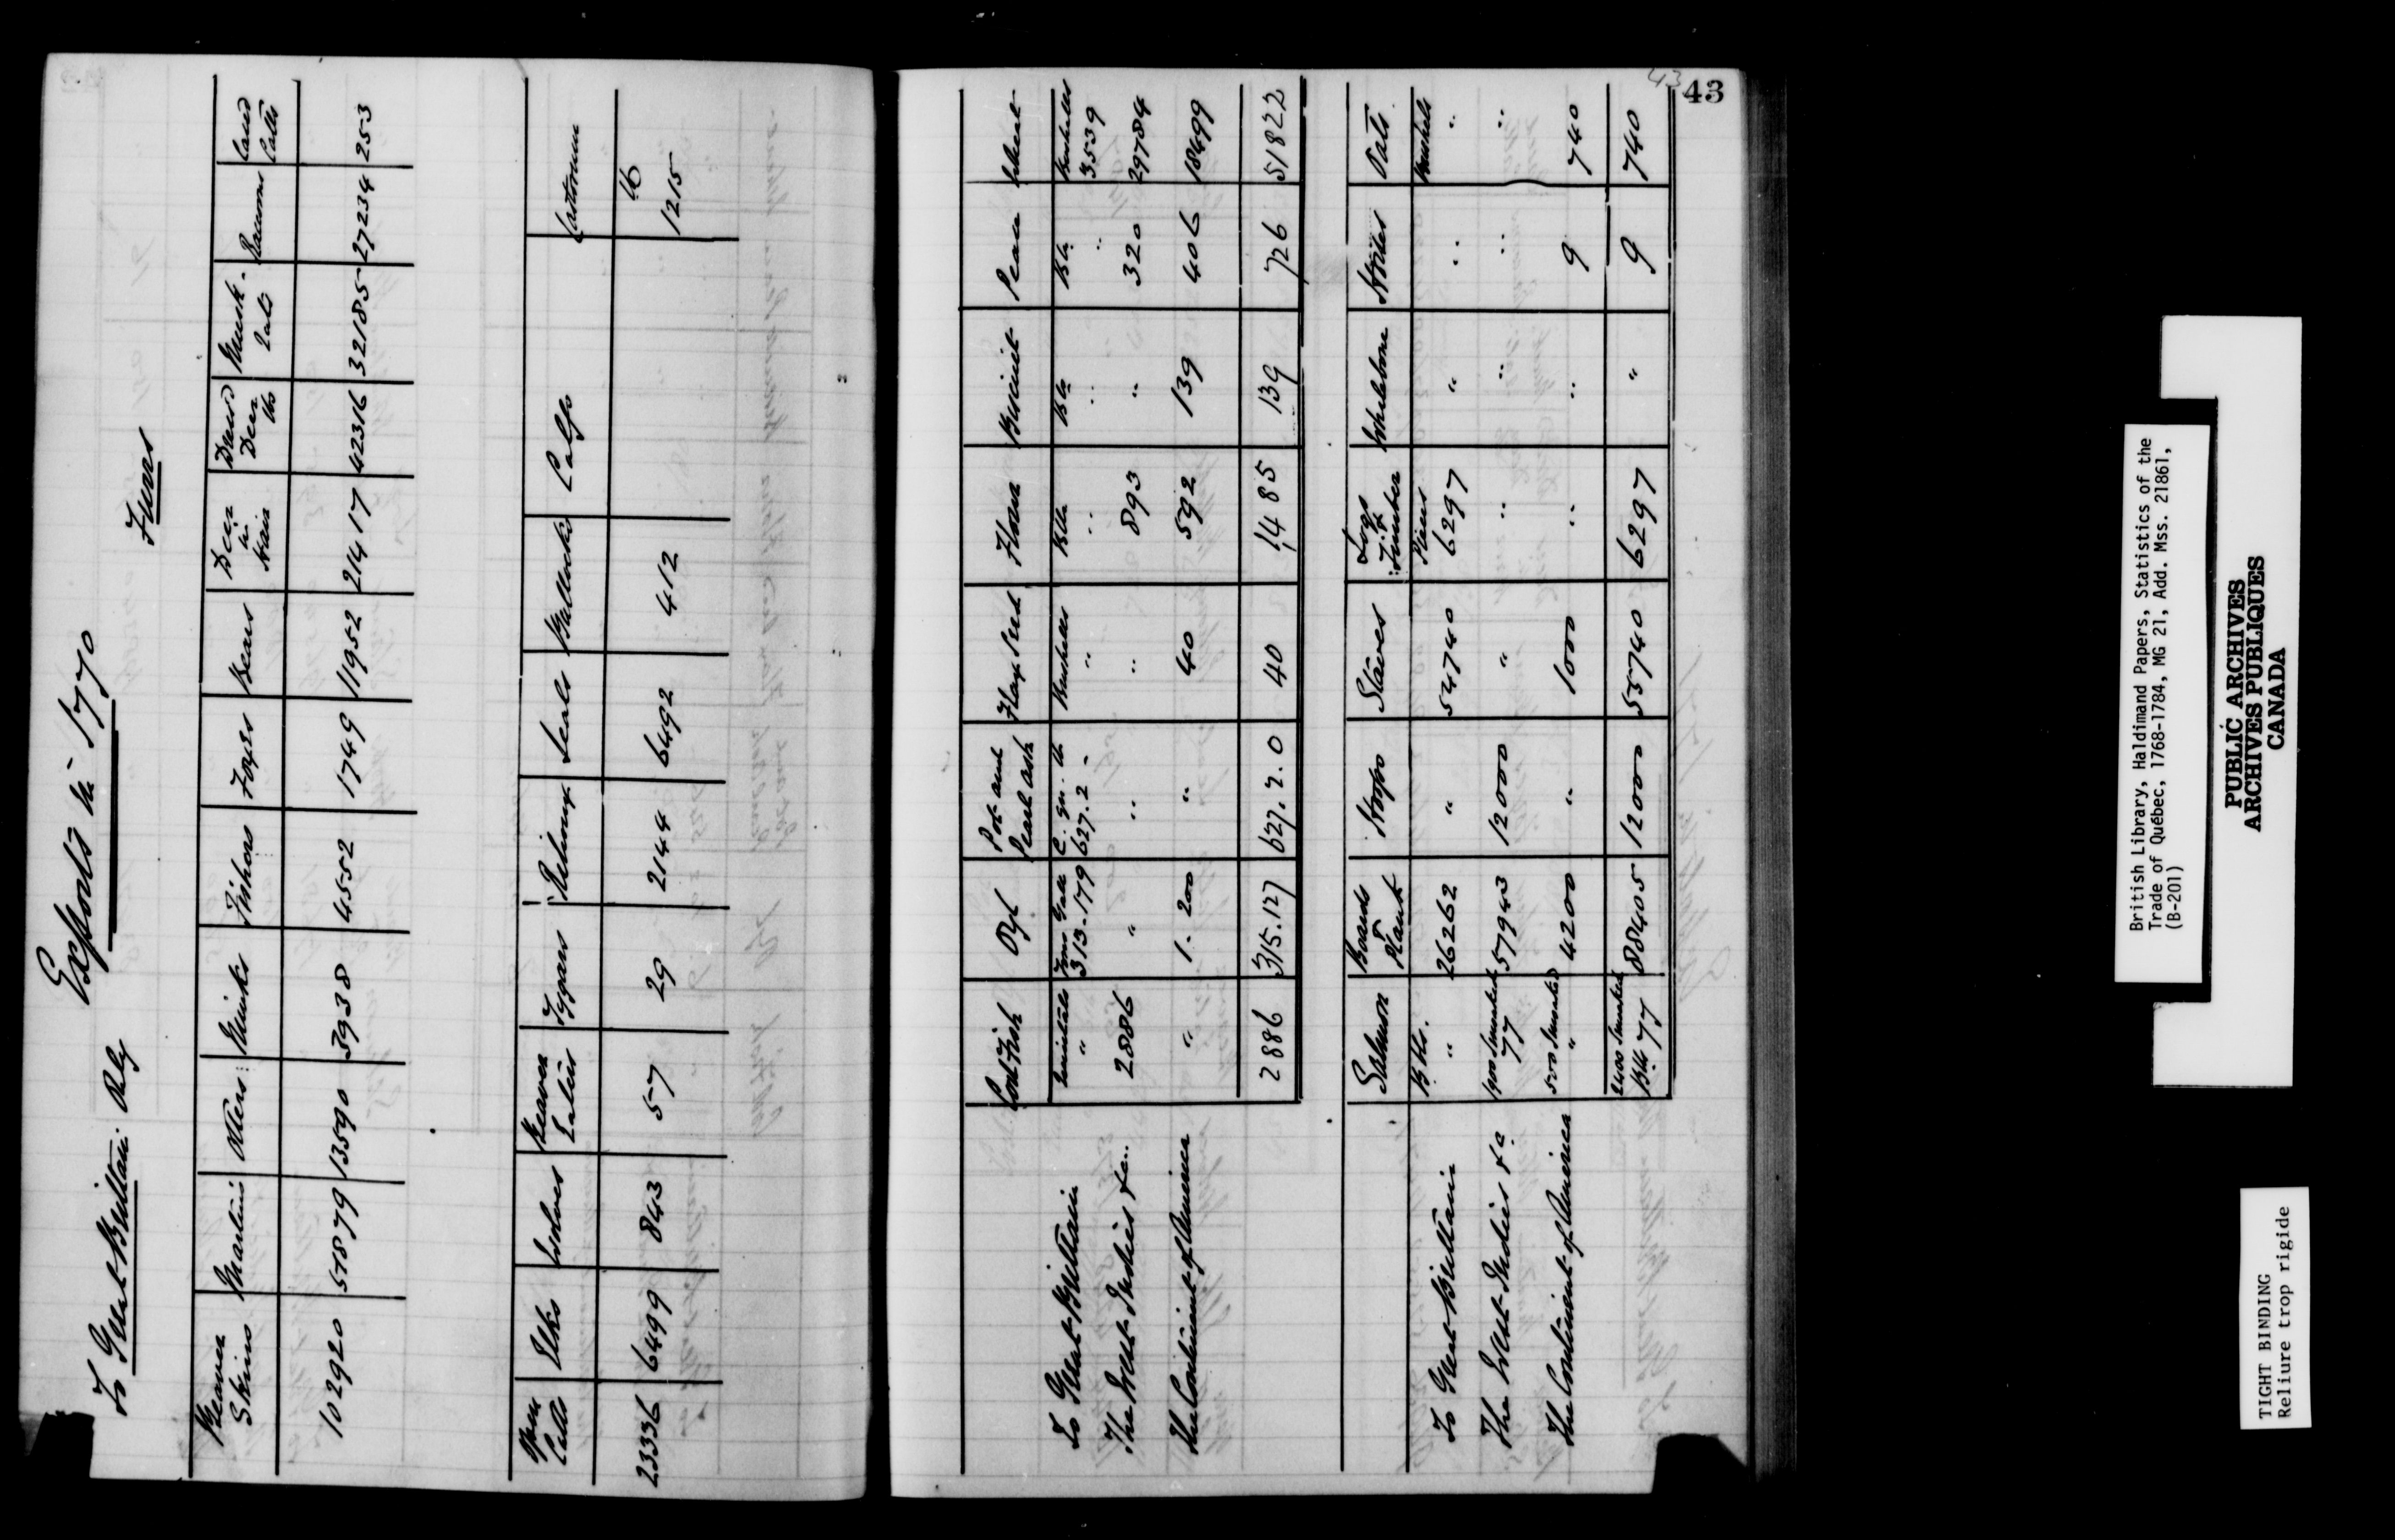 Exports in 1770
To Great Brittain Only
Furs
Beaver Skins | Martins | Otters | Minks | Fishers | Foxes | Bears | Deer in Hair | Dress'd Deer lbs | Musk-rats | Racoons | Cased Catts
102920 | 51879 | 13590 | 3938 | 4552 | 1749 | 11952 | 21417 | 42316 | 32185 | 27234 | 253
Open Catts | Elks | Wolves | Beaver Eaters | Tygers | Kitinox | Seals | Bullocks | Calfs | Castorum
lb
23336 | 6499 | 843 | 57 | 29 | 2144 | 6492 | 412 | 1215
Cod Fish | Oyl | Pot and Pearl ash | Flax Seed | Flour | Biscuit | Pease | Wheat
Quintalls | Tons Galls | C. qr. lb | Bushells | Blls | Bls | Bls | Bushells
To Great Brittain | " | 313-179 | 627.2 - | " | " | " | " | 3539
The West Indies &c. | 2886 | " | " | " | 893 | " | 320 | 29784
The Continent of America | " | 1-200 | " | 40 | 592 | 139 | 406 | 18499
2886 | 315.127 | 627.2.0 | 40 | 1485 | 139 | 726 | 51822
Salmon | Boards & Plank | Hoops | Staves | Logs & Timber | Whalebone | Horses | Oats
Bbls. | Pieces | Bushels
To Great Brittain | " | 26262 | " | 54740 | 6297 | " | " | "
The West Indies &c | 1900 Smoaked 77 | 57943 | 12000 | " | " | " | " | "
The Continent of America | 500 Smoaked " | 4200 | " | 1000 | " | " | 9 | 740
2400 Smoaked
Blls 77 | 88405 | 12000 | 55740 | 6297 | " | 9 | 740
43
43
British Library, Haldimand Papers, Statistics of the
Trade of Québec, 1768-1784, MG 21, Add. Mss. 21861,
(B-201)
PUBLIC ARCHIVES
ARCHIVES PUBLIQUES
CANADA
TIGHT BINDING
Reliure trop rigide